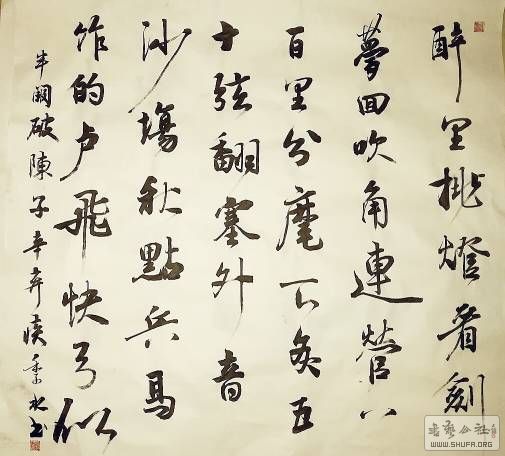 醉里挑燈看劍
夢回吹角連營八
百里分麾下炙五
十弦翻塞外音
沙塲秋點兵馬
作的卢飛快弓似
半闕破陳子辛弃疾书
WWW.SHUFA.ORG